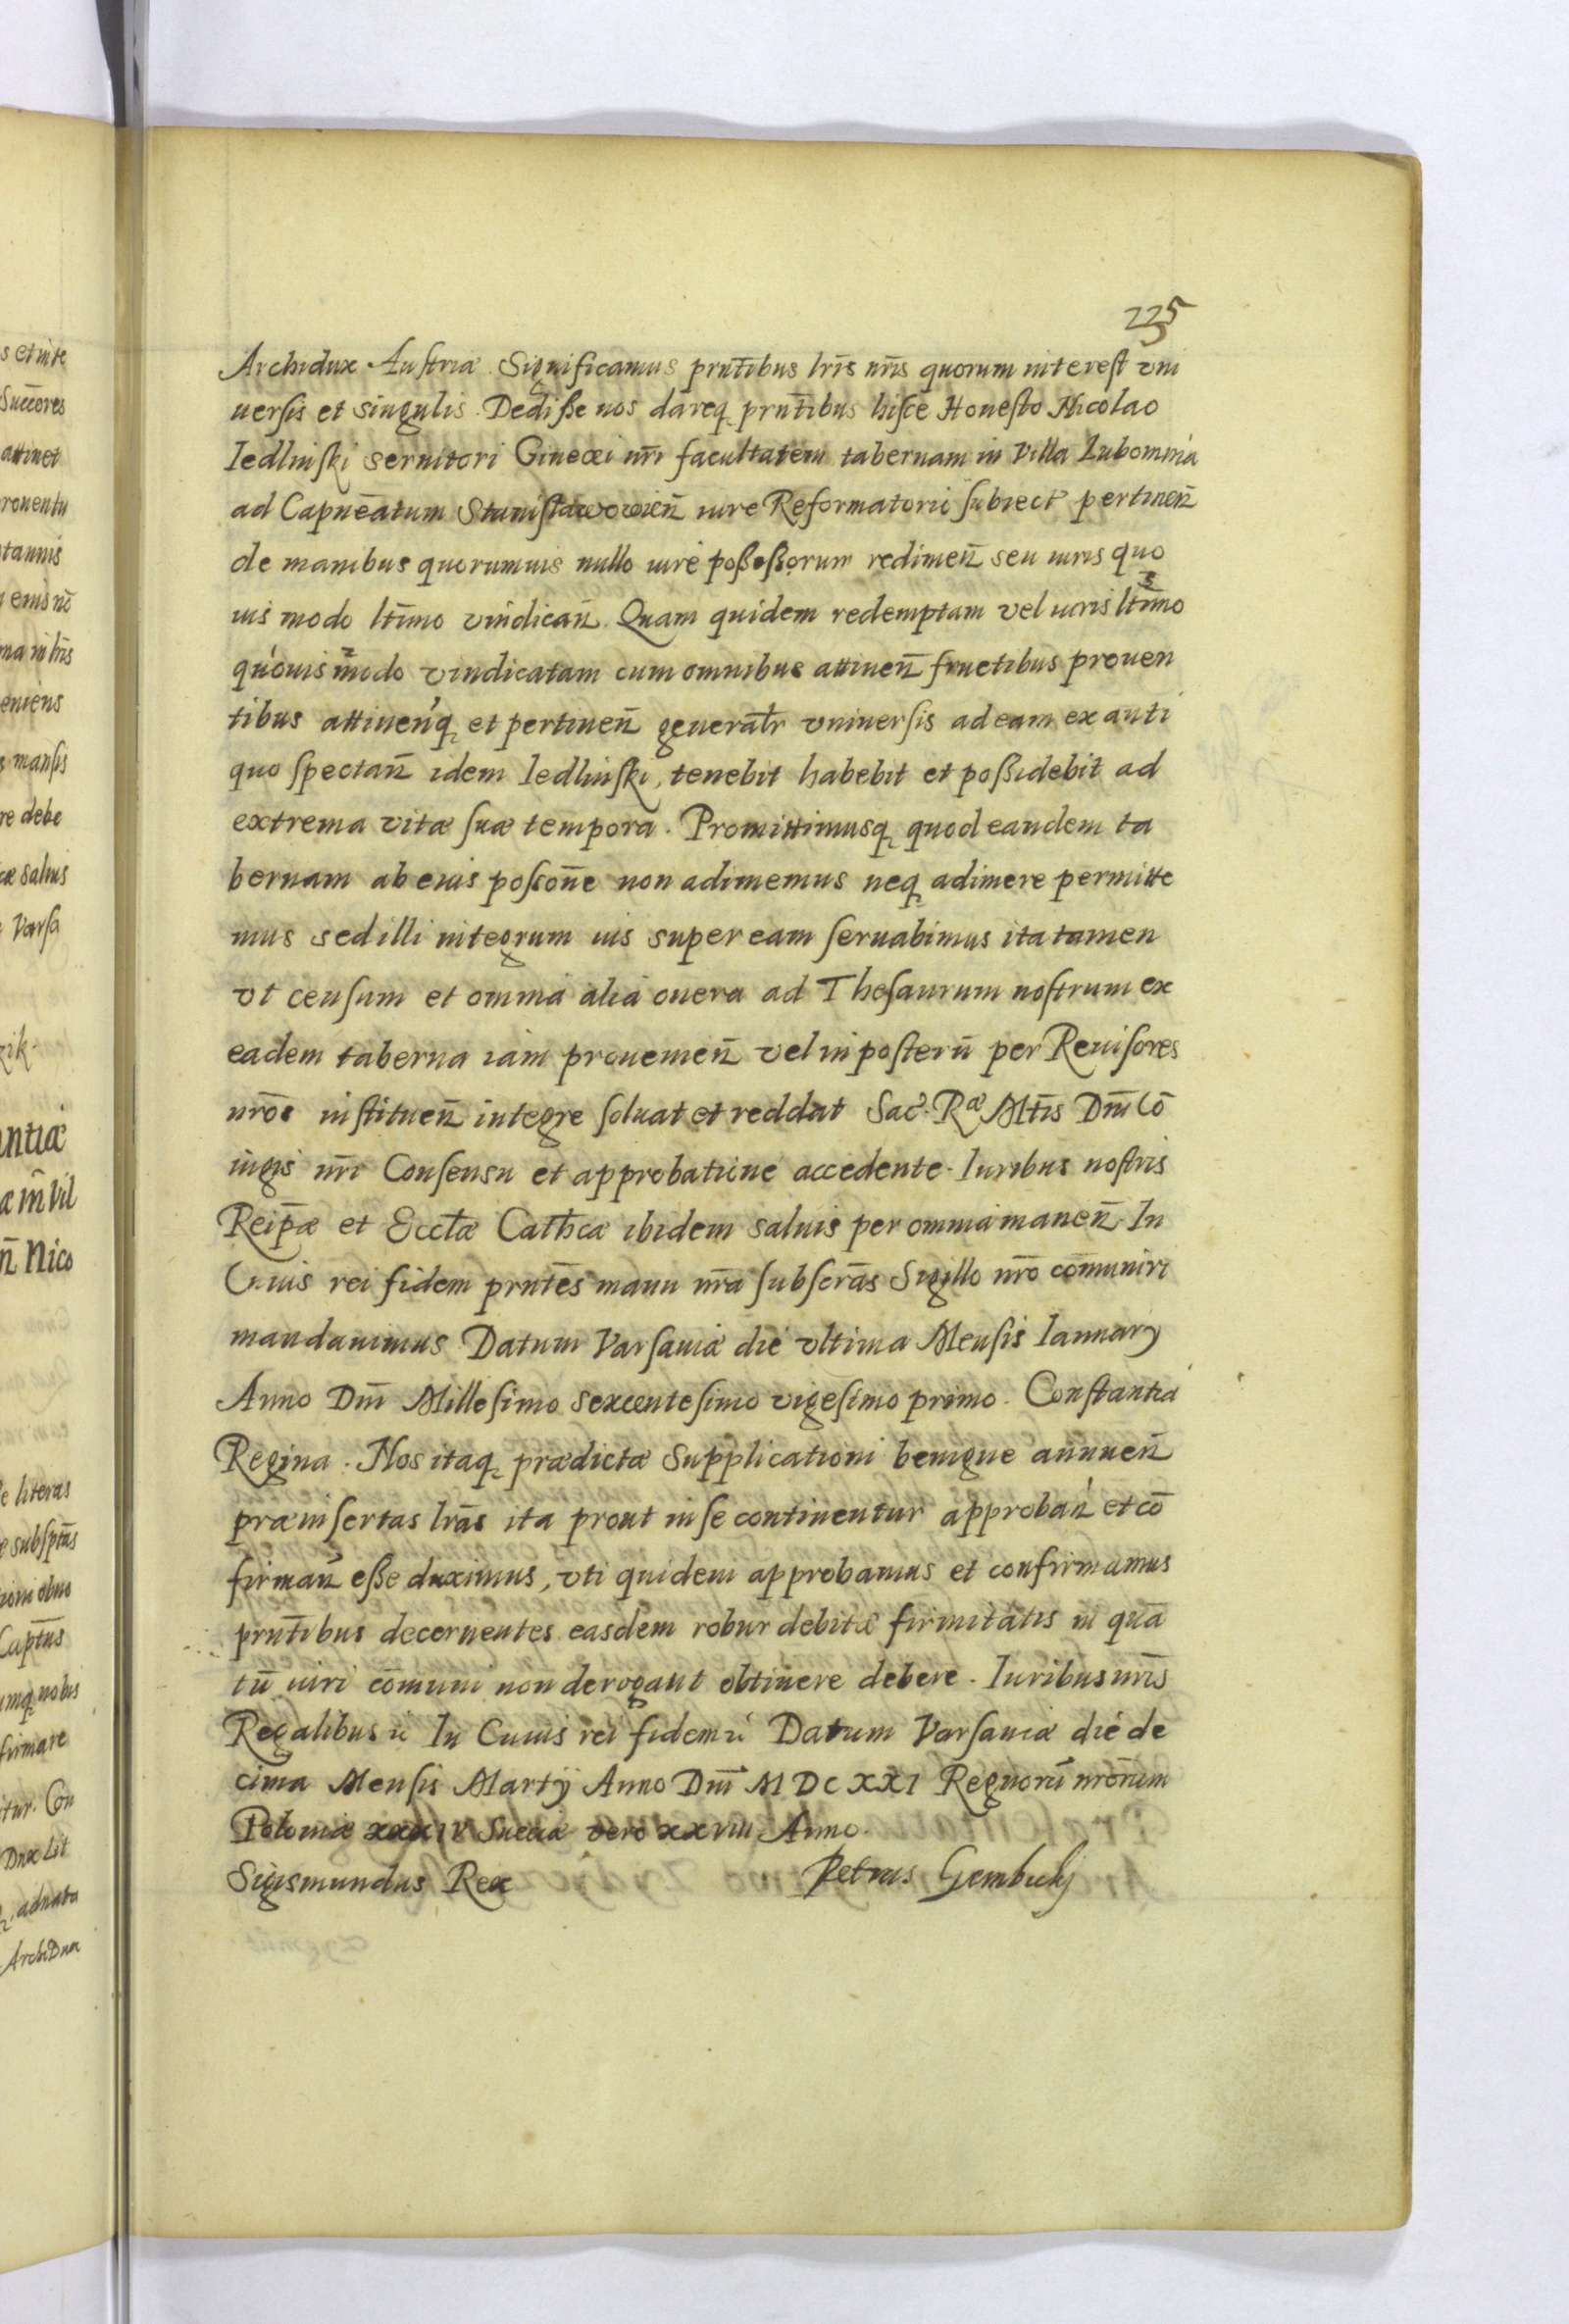 225
Archidux Austriæ Significamus prnt̄ibus lrīs nrīs quorum interest vni
uersis et singulis. Dedisse nos dareq prnt̄ibus hisce Honesto Nicolao
Iedlinski seruitori Ginecei nrī facultatem tabernam in Villa Lubomnia
ad Capnēatum iure Reformatorii subiect pertinen̄
de manibus quorumuis nullo iure possessorum redimen̄ seu iuris quo
uis modo ltīmo vindican̄. Quam quidem redemptam vel iuris ltīmo
quouis modo vindicatam cum omnibus attinen̄ fructibus prouen
tibus attinenq et pertinen̄ generalr̄ vniuersis ad eam ex anti
quo spectan̄ idem Iedlinski, tenebit habebit et possidebit ad
extrema vitæ suæ tempora. Promittimusq quod eandem ta
bernam ab eius posson̄e non adimemus neq adimere permitte
mus sed illi integrum ius super eam seruabimus ita tamen
vt censum et omnia alia onera ad Thesaurum nostrum ex
eadem taberna iam prouenien̄ vel in posterū per Reuisores
nrōs instituen̄ integre soluat et reddat Sac. Ræ Mtīs Dnī Cō
iugis nrī Consensu et approbatione accedente. Iuribus nostris
Reip̄æ et Ecctæ Cathcæ ibidem saluis per omnia manen̄. In
Cuius rei fidem prntēs manu nrā subscrās Sigillo nrō com̄uniri
mandauimus Datum Varsauiæ die vltima Mensis Ianuarij
Anno Dnī Millesimo sexcentesimo vigesimo primo. Constantia
Regina. Nos itaq prædictæ Supplicationi benigne annuen̄
præinsertas lrās ita prout in se continentur approban̄ et cō
firman̄ esse duximus, vti quidem approbamus et confirmamus
prnt̄ibus decernentes easdem robur debitæ firmitatis in quā
tū iuri com̄uni non derogant obtinere debere. Iuribus nrīs
Regalibus ꝛc In Cuius rei fidem ꝛc Datum Varsauiæ die de
cima Mensis Martij Anno Dnī MDCXXI Regnorū nrōrum
Poloniæ XXXIV Sueciæ vero XXVIII Anno.
Sigismundus Rex Petrus Gembicky